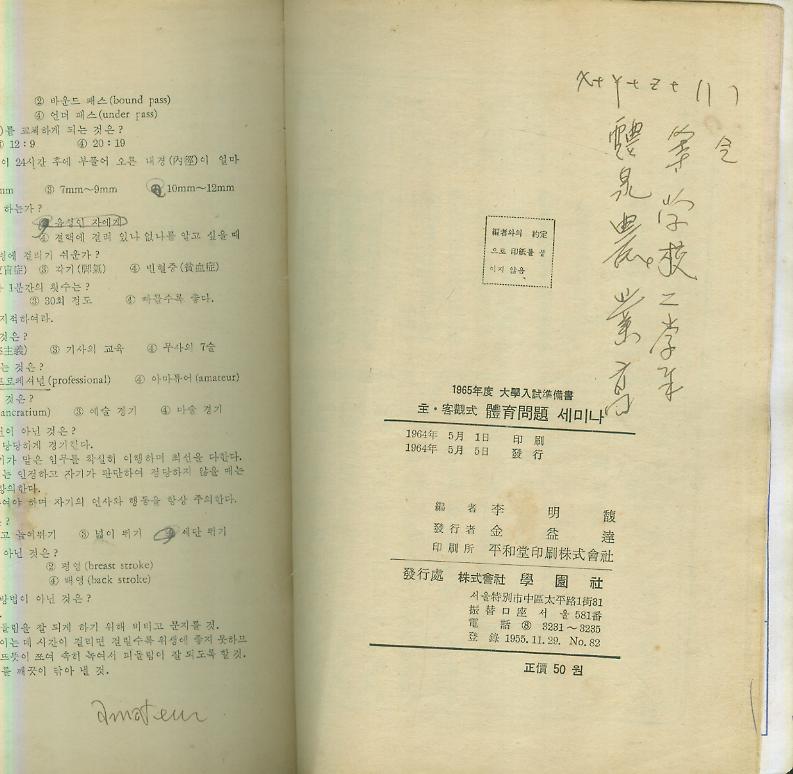 ② 바운드 패스(bound pass)
④ 언더 패스(under pass)
)를 교체하게 되는 것은?
12 : 9 ④ 20 : 19
이 24시간 후에 부풀어 오른 내경(內徑)이 얼마
mm ③ 7mm～9mm 10mm～12mm
하는가?
음성인 자에게
④ 결핵에 걸려 있나 없나를 알고 싶을 때
에 걸리기 쉬운가?
盲症) ③ 각기(脚氣) ④ 빈혈증(貧血症)
1분간의 횟수는?
③ 30회 정도 ④ 빠를수록 좋다.
지적하여라.
것은?
主義) ③ 기사의 교육 ④ 무사의 7술
는 것은?
프로페셔널(professional) ④ 아마튜어(amateur)
것은?
ancratium) ③ 예술 경기 ④ 마술 경기
이 아닌 것은?
당당하게 경기한다.
기가 맡은 임무를 확실히 이행하며 최선을 다한다.
는 인정하고 자기가 판단하여 정당하지 않을 때는
의한다.
여야 하며 자기의 언사와 행동을 항상 주의한다.
?
고 높이뛰기 ③ 넓이 뛰기 세단 뛰기
아닌 것은?
② 평영(breast stroke)
④ 배영(back stroke)
방법이 아닌 것은?
들림을 잘 되게 하기 위해 비비고 문지를 것.
이는 데 시간이 걸리면 걸릴수록 위생에 좋지 못하므
뜨뜻이 쪼여 속히 녹여서 피돌림이 잘 되도록 할 것.
를 깨끗이 닦아 낼 것.
amateur
x+y+z+
醴泉農業高
等学校二学年
編者와의 約定
으로 印紙를 붙
이지 않음
1965年度 大學入試準備書
主・客觀式 體育問題 세미나
1964年 5月 1日 印刷
1964年 5月 5日 發行
編者 李明馥
發行者 金益達
印刷所 平和堂印刷株式會社
發行處 株式會社 學園社
서울特別市中區太平路1街31
振替口座 서울 581番
電話 ⑧ 3231～3235
登錄 1955.11.29. No.82
正價 50 원